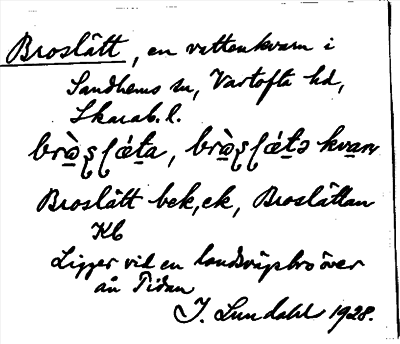 Broslätt, en vattenkvarn i
Sandhems sn, Vartofta hd,
Skarab. l.
Broslätt bek, ek, Broslättan
Kb
Ligger vid en landsvägsbro över
ån Tidan
I. Lundahl 1928.